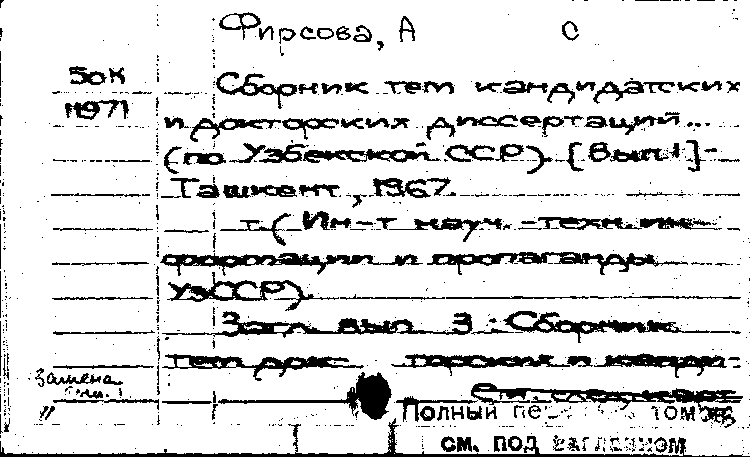 Фирсова, А С
50К Сборник тем кандидатских
и докторских диссертаций...
(по Узбекской ССР). [Вып 1]-
Ташкент, 1967.
т. (Ин-т науч.-техн. ин-
формации и пропаганды
УзССР).
Загл. вып 3: Сборник
тем док торских и канди-
Замена
См. след. карт
"
Полный томов
см. под заглавием